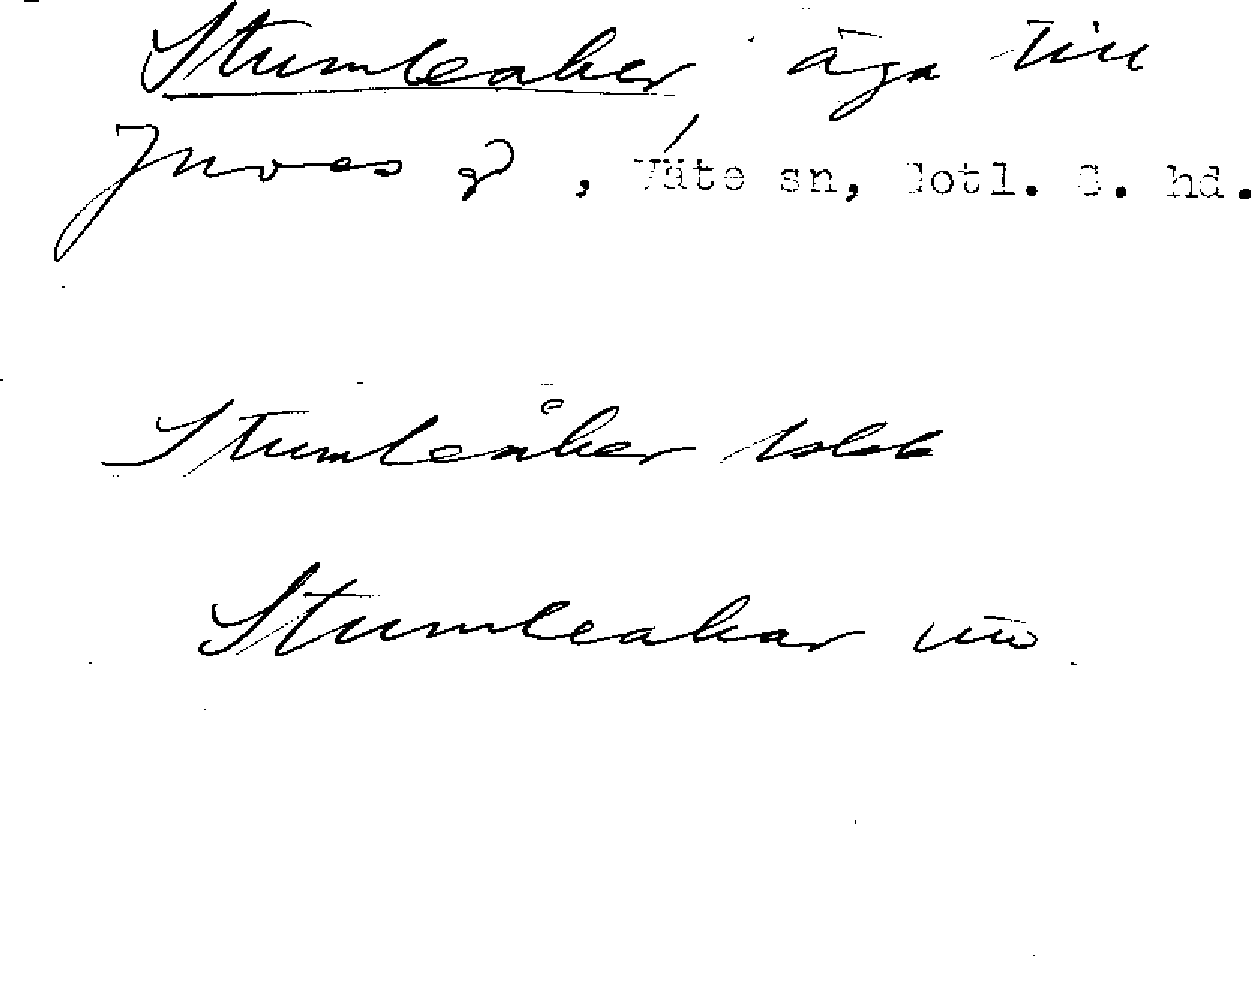 Stumleaker äga till
Juves g, Väte sn, Gotl. S. hd.
Stumleåker
Stumleakar